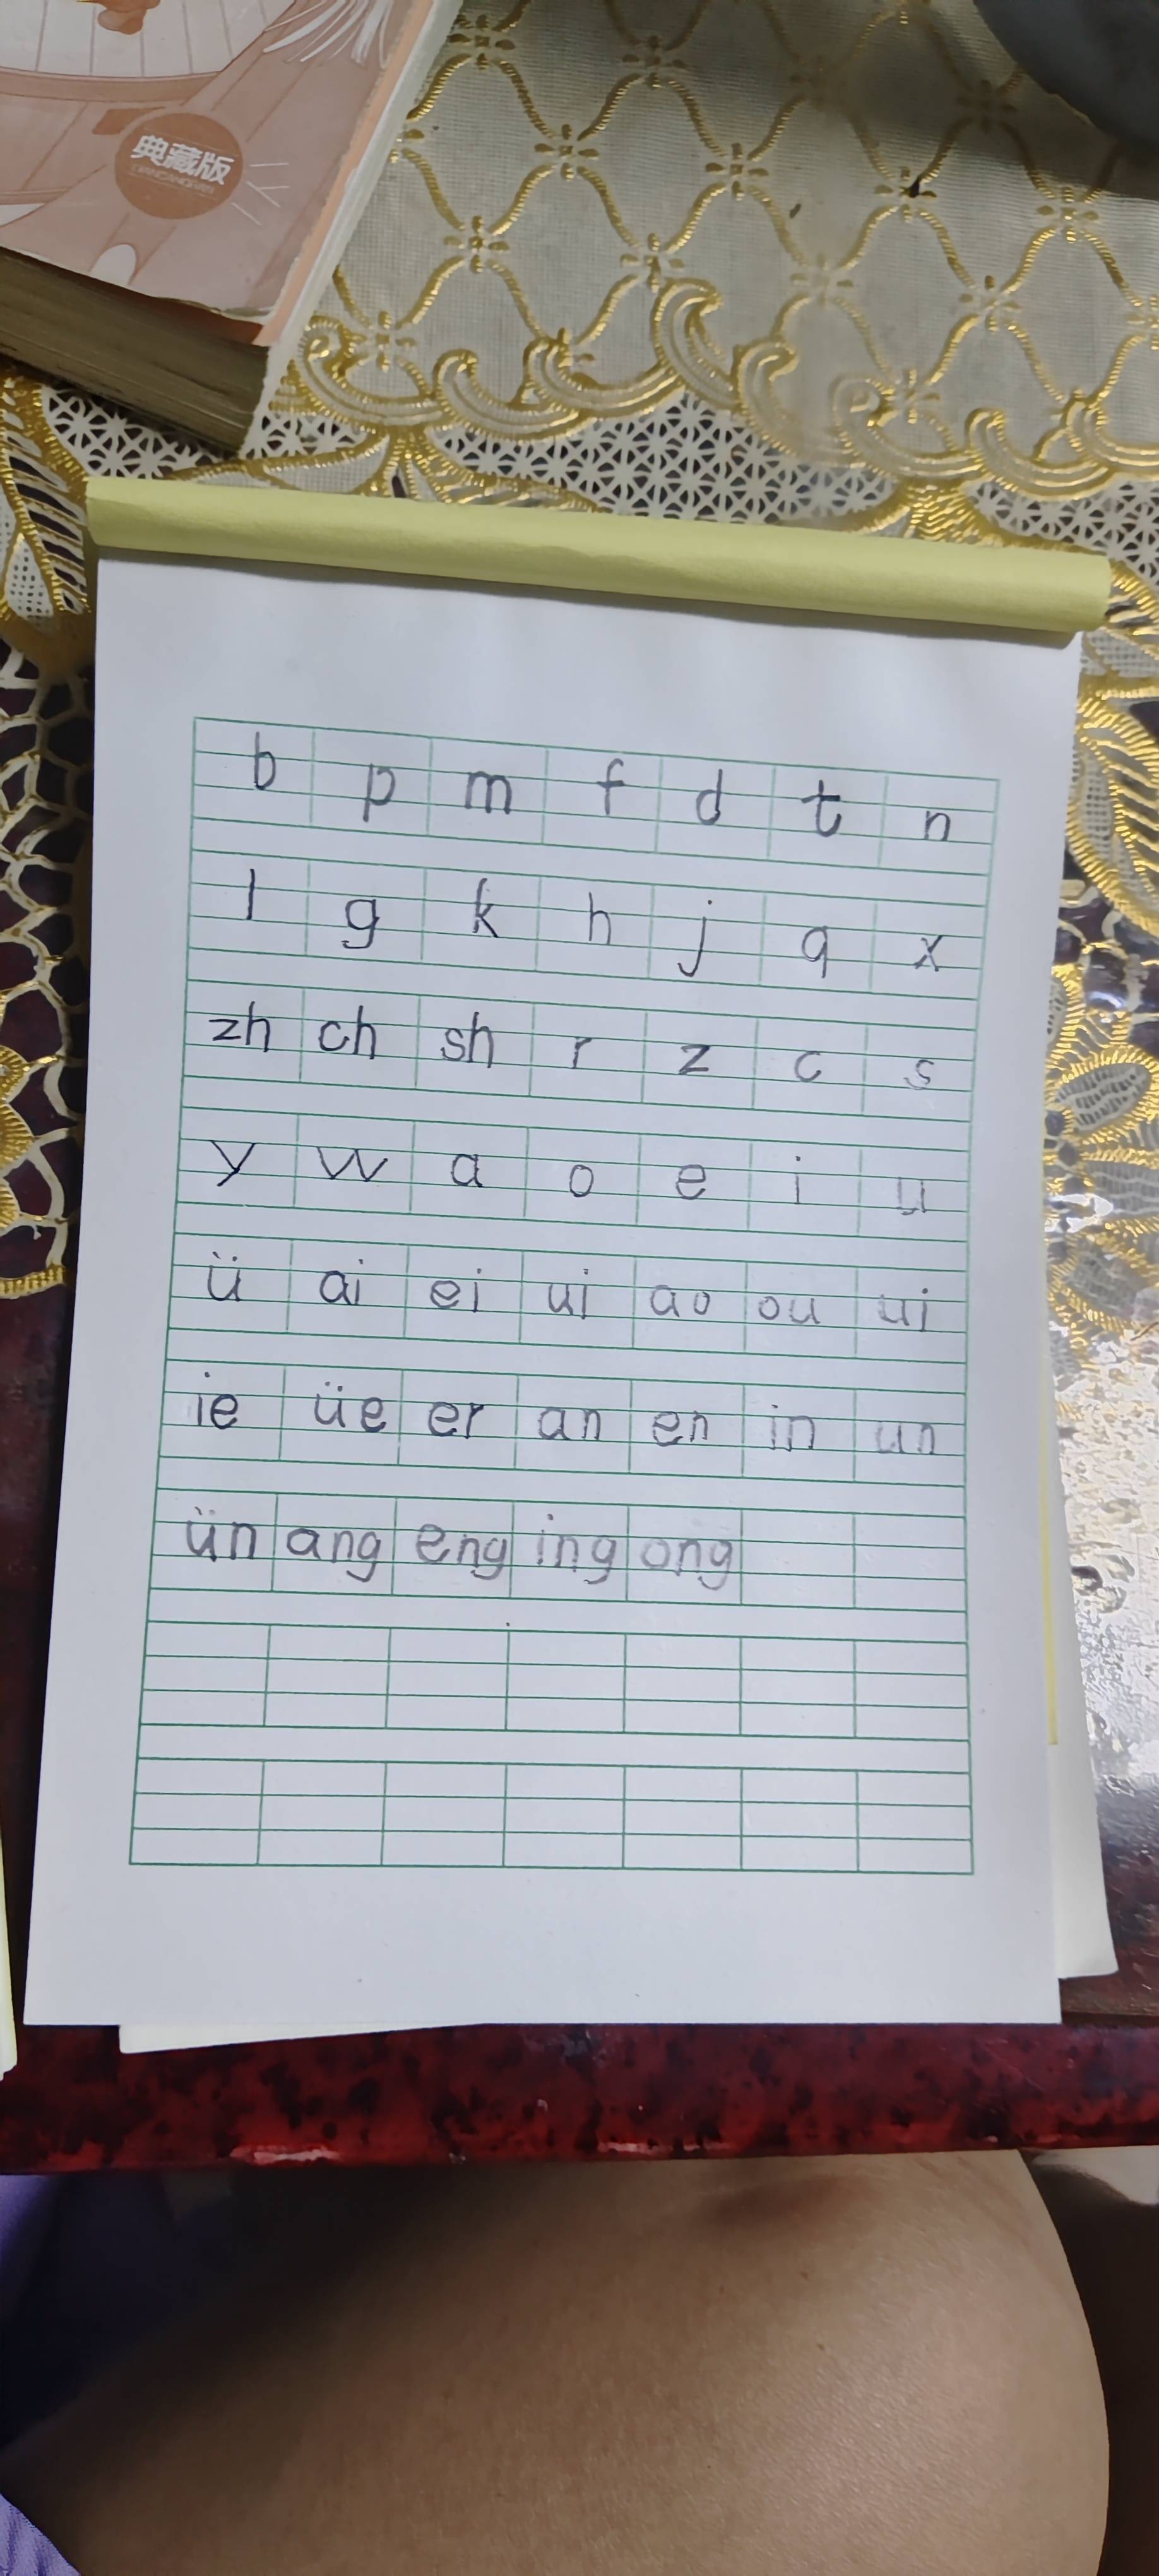 典藏版
DIANCANGBAN
b p m f d t n
l g k h j q x
zh ch sh r z c s
y w a o e i u
ü ai ei ui ao ou ui
ie üe er an en in un
ün ang eng ing ong